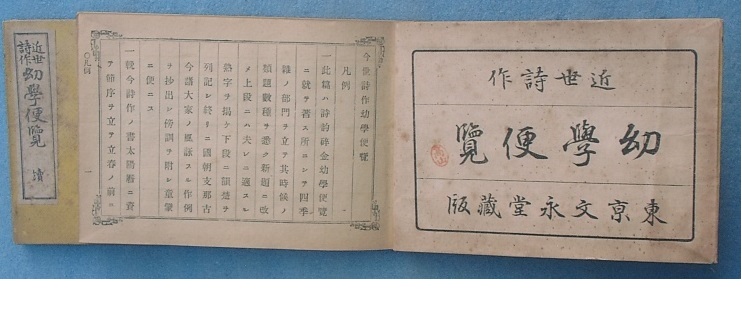 近世詩作
幼學便覽
東亰文永堂藏版
詩作幼學便覽
凡例
一此編ハ詩韵碎金幼學便覽
ニ就テ著ス所ニシテ四季
雜ノ部門ヲ立テ其時候ノ
類題數種ヲ悉ク新題ニ改
メ上段ニハ夫レニ適スル
熟字ヲ揭ケ下段ニ韻礎ヲ
列記シ終リニ國朝支那古
今諸大家ノ風詠スル作例
ヲ抄出シ傍訓ヲ附シ童蒙
ニ便ニス
一輓今詩作ノ書太陽曆ニ
テ節序ヲ立テ立春ノ前ニ
〇凡例
一
近世詩作
幼學便覽